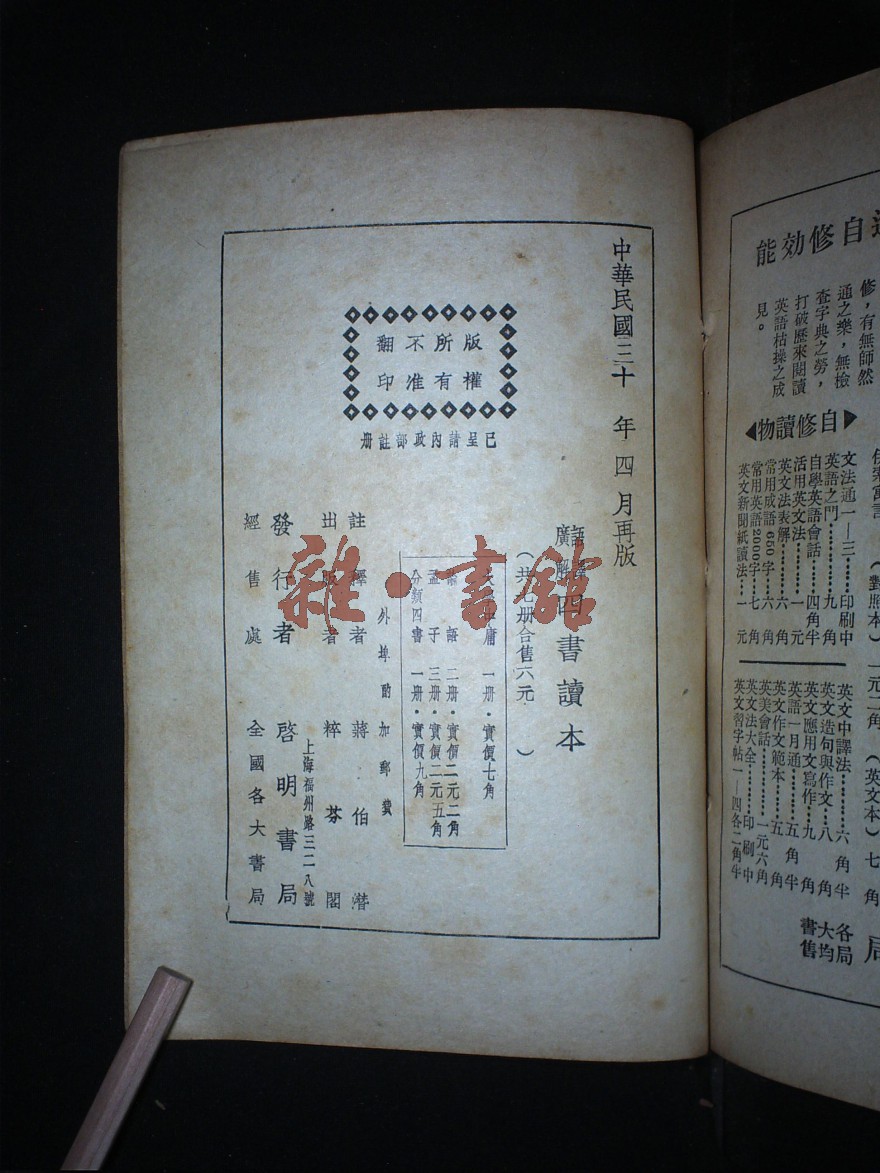 中華民國三十年四月再版
語譯
廣解
四書讀本
(共七册合售六元)
庸 一册·實價七角
論語 二册·實價二元二角
孟子 三册·實價二元五角
分類四書 一册·實價九角
外埠酌加郵費
註釋者 蔣伯潛
出版者 粹芬閣
上海福州路三二八號
發行者 啓明書局
經售處 全國各大書局
版權
所有
不准
翻印
已呈請內政部註册
雜·書館
自修効能
修,有無師然
通之樂,無檢
查字典之勞,
打破歷來閱讀
英語枯操之成
見。
自修讀物
文法通一—三………印刷中
英語之門…………九角
自學英語會話……四角半
活用英文法………一元
英文法表解………六角
常用成語650字……六角
常用英語2000字…七角
英文新聞紙讀法…一元
英文中譯法………六角半
英文造句與作文…八角
英文應用文寫作…九角
英語一月通………五角半
英文作文範本……五角
英美會話…………一元六角
英文法大全………印刷中
英文習字帖一—四各二角半
(對照本)一元二角
(英文本)七角
局
各大書
局均售